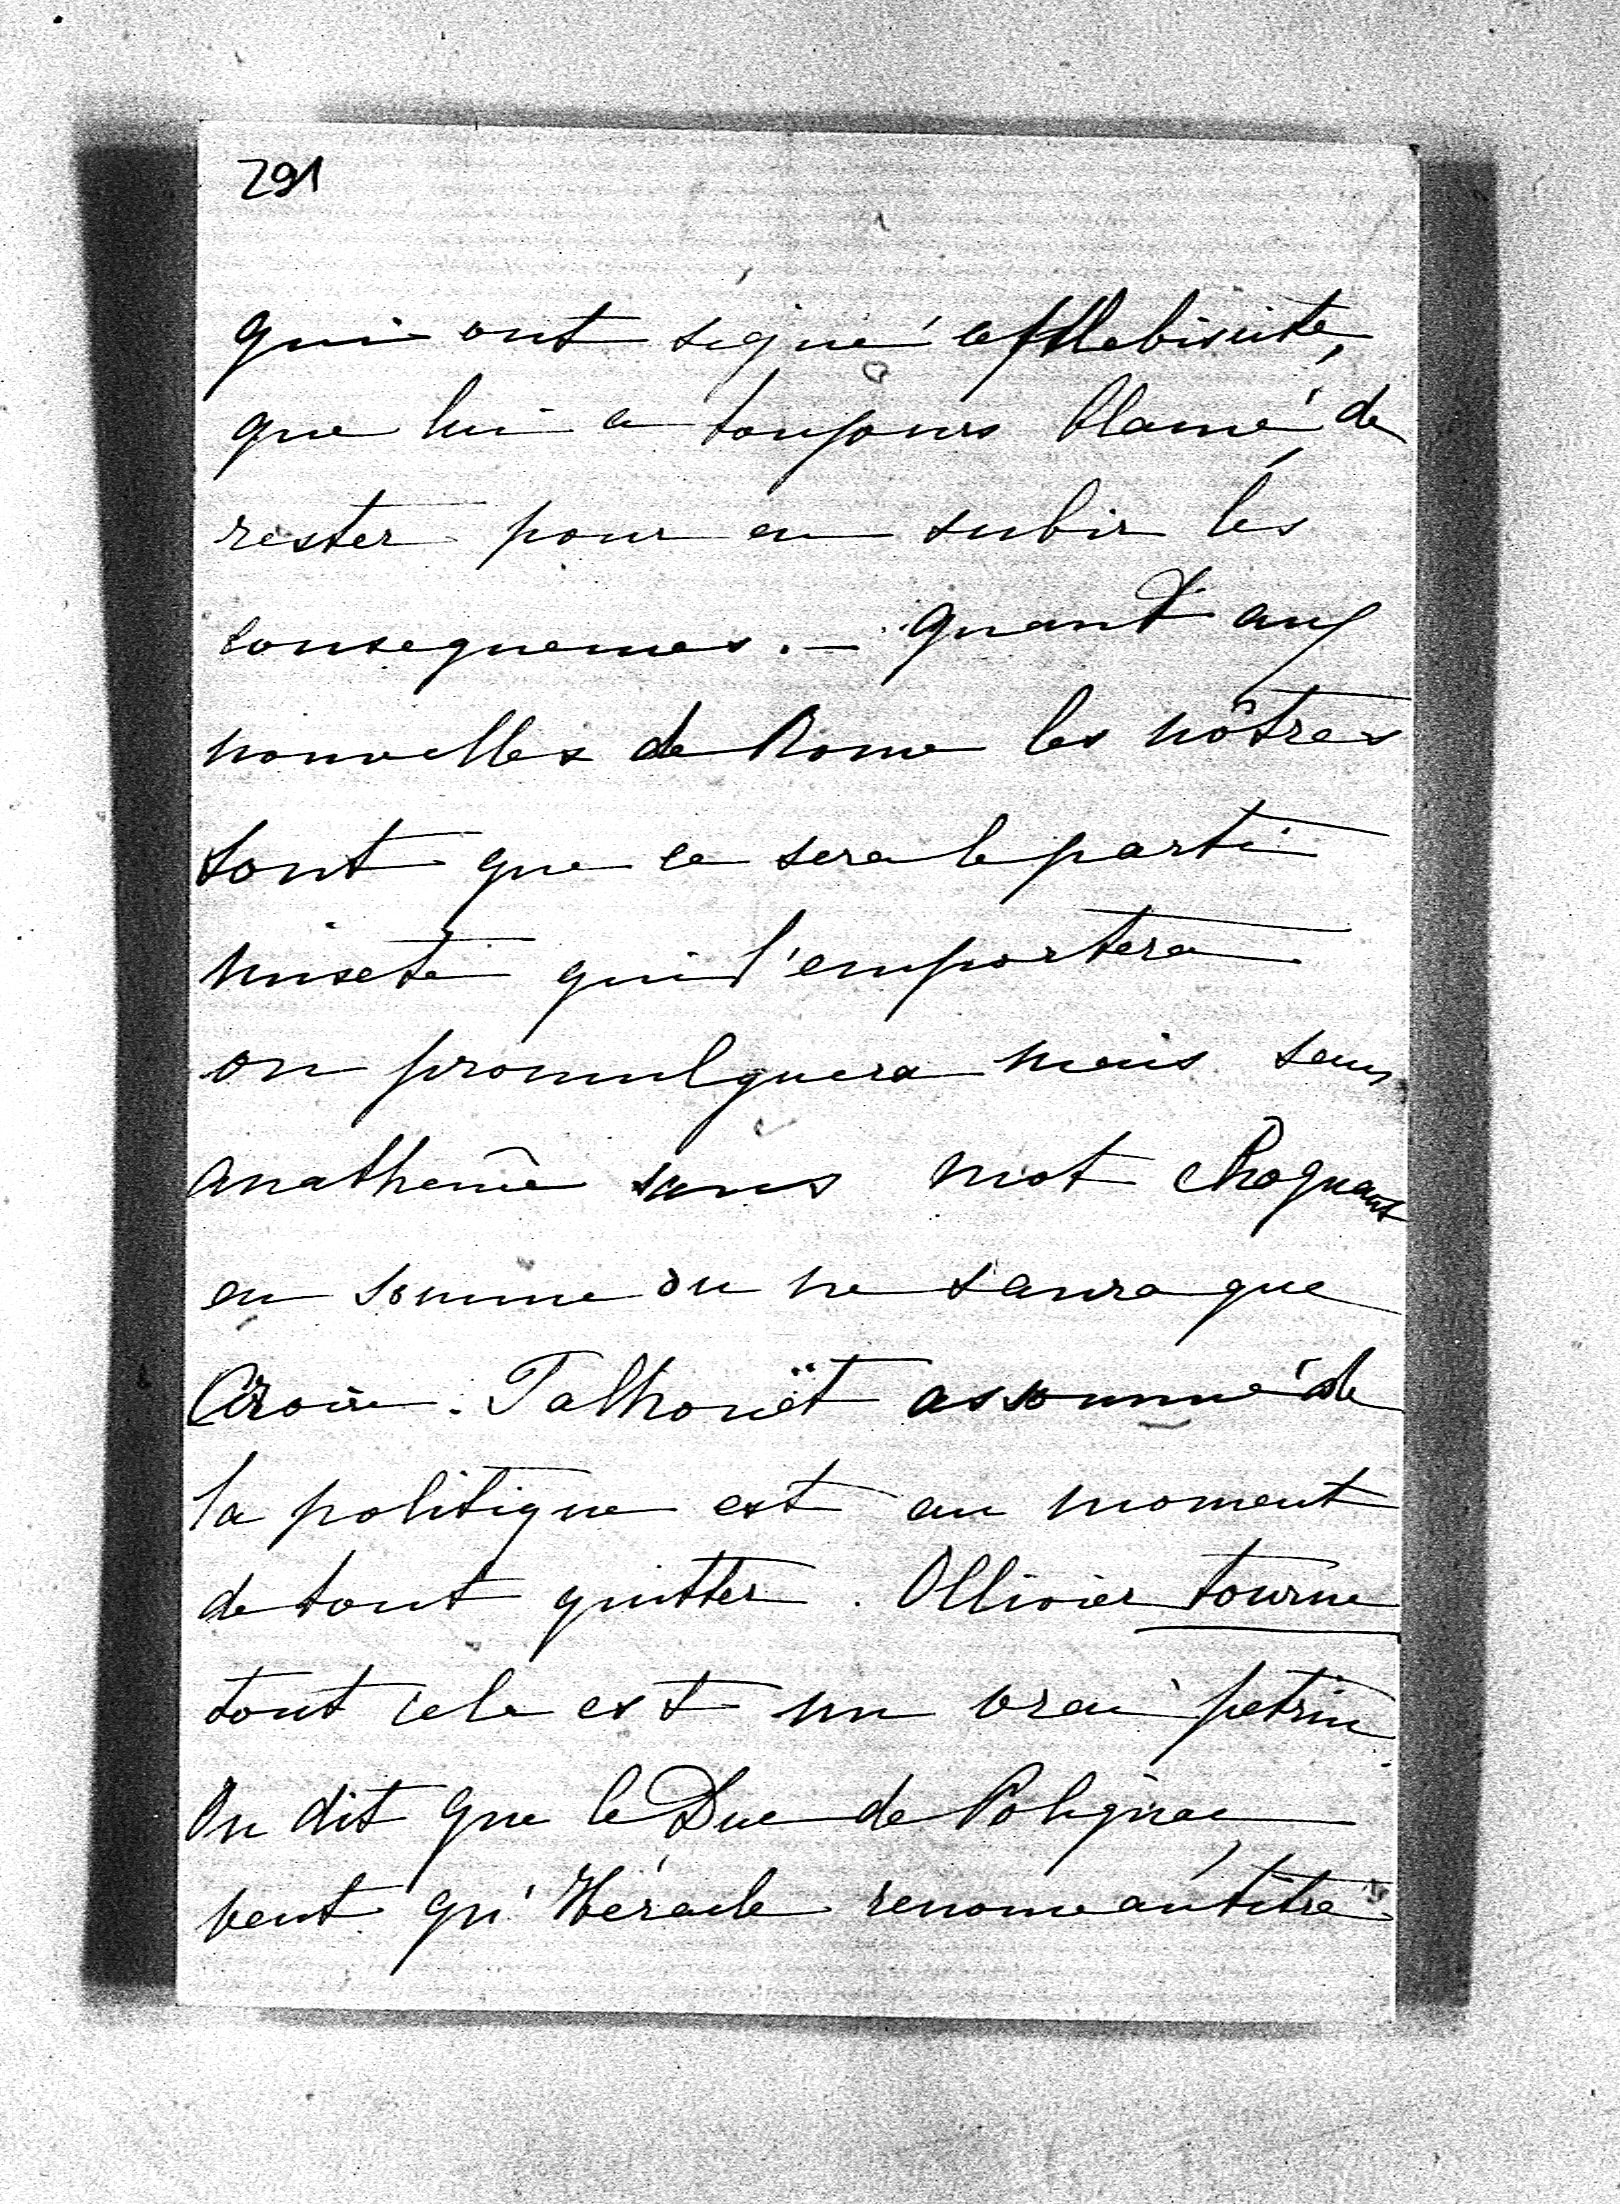 291
qui ont signé le plebiscite,
que lui a toujours blamé, de
rester pour en subir les
consequences. - quant aux
nouvelles de Rome les nôtres
sont que ce sera le parti
mixte qui l'emportera
on promulguera mais sans
anathème sans mot choquant
en somme on ne saura que
Croire. Talhouët assommé de
la politique est au moment
de tout quitter. Ollivier tourne
tout cela est un vrai petrin.
On dit que le Duc de Polignac
veut qu'Héracle renonce au titre